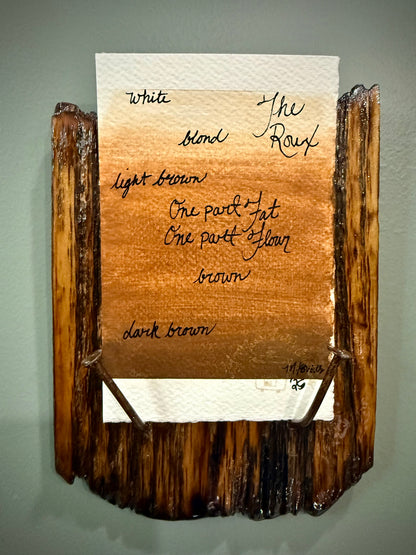 White
The
Roux
blond
light brown
One part Fat
One part Flour
brown
dark brown
'26